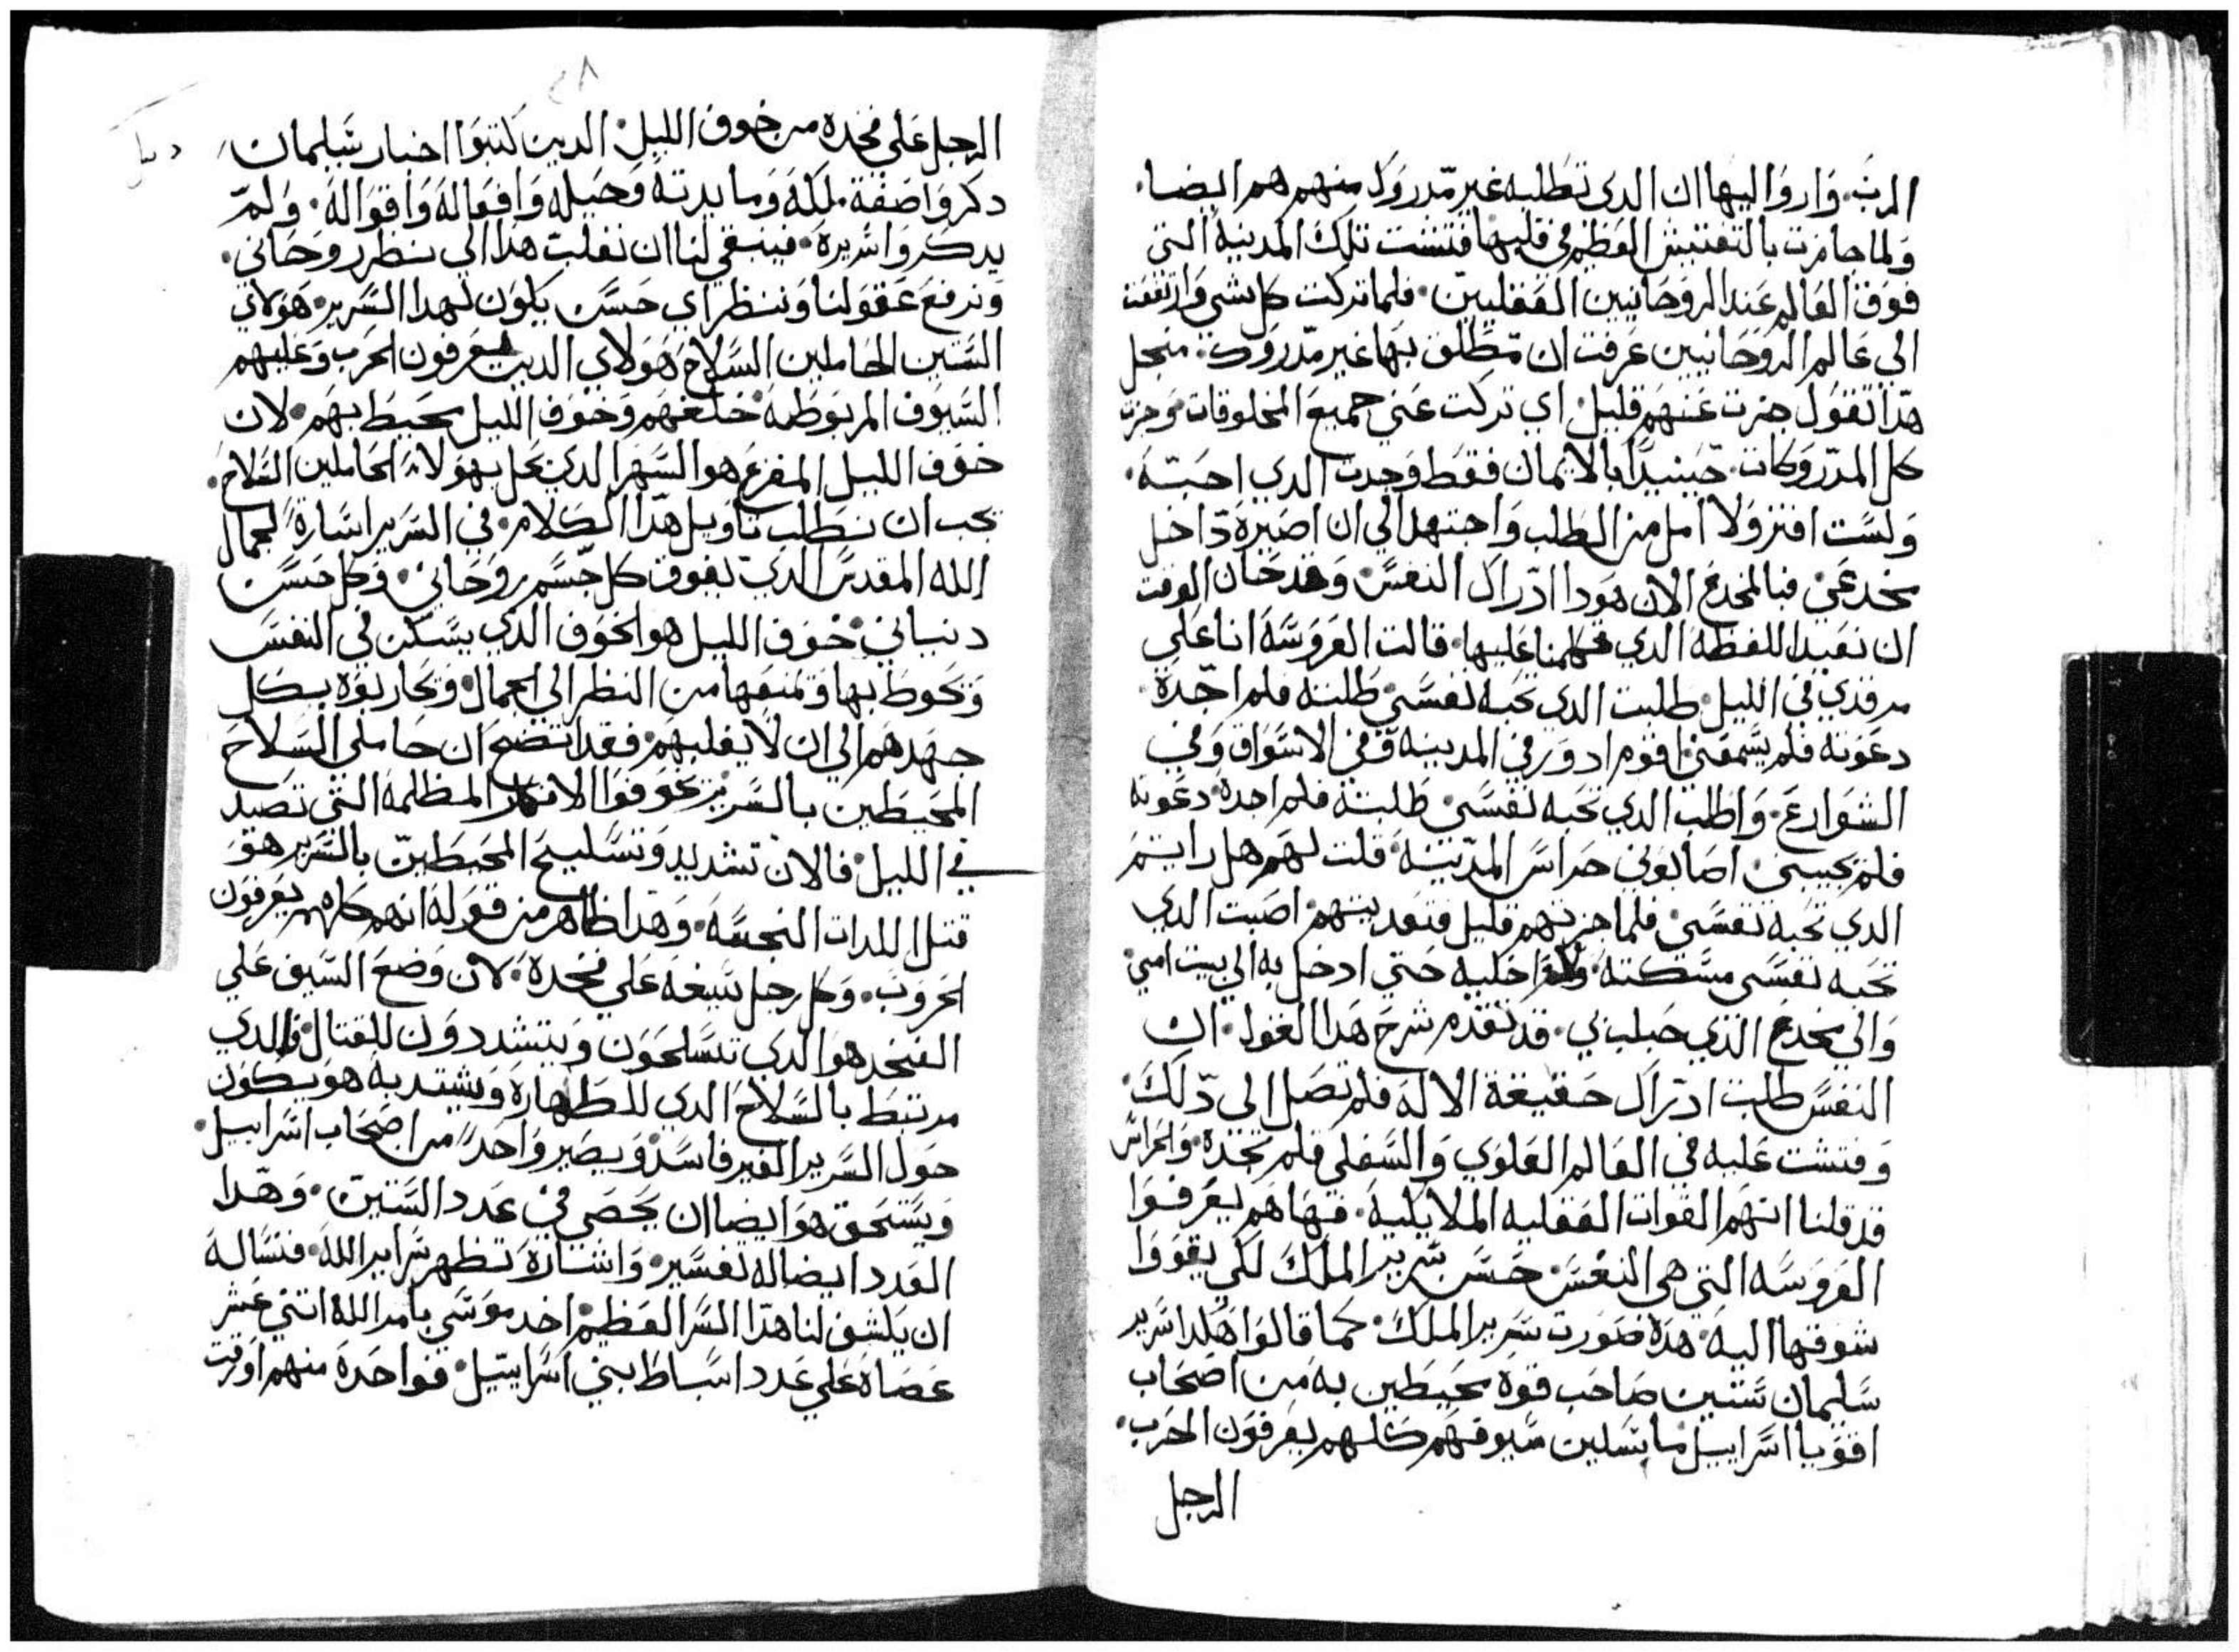 الرب. واروا اليها ان الدي تطلبه غير مدروك منهم هم ايضا.
ولما جازت بالتفتيش العظيم في قلبها فتشت تلك المدينه التي
فوق العالم عند الروحانيين العقليين. فلما تركت كل شي وارتفعت
الي عالم الروحانيين عرفت ان مطلوبها غير مدروك. منجل
هدا تقول جزت عنهم قليل. اي تركت عني جميع المخلوقات وجزت
كل المدروكات. حينيدا بالايمان فقط وجدت الدي احبته.
ولست افتر ولا امل من الطلب واجتهد الي ان اصيره داخل
مخدعي. فبالمخدع الان هودا ادراك النفس. وقد حان الوقت
ان نعيد اللفظه الدي تكلمنا عليها. قالت العروسه انا علي
مرقدي في الليل. طلبت الدي تحبه نفسي طلبته فلم اجده
دعوته فلم يسمعني. اقوم ادور في المدينه في الاسواق وفي
الشوارع. واطلب الدي تحبه نفسي. طلبته فلم اجده دعوته
فلم يجيبني. اصابوني حراس المدينه. قلت لهم هل رايتم
الدي تحبه نفسي. فلما جزتهم قليل وتعديتهم. اصبت الدي
تحبه نفسي مسكته ولا اخليه حتي ادخل به الي بيت امي
والي مخدع الدي حبلت بي. قد تقدم شرح هدا القول. ان
النفس طلبت ادراك حقيقة الاله فلم تصل الي دلك.
وفتشت عليه في العالم العلوي والسفلي فلم تجده. والحراس
قد قلنا انهم القوات العقليه الملايكيه. فها هم يعرفوا
العروسه التي هي النفس. حسن سرير الملك لكي يقووا
شوقها اليه. هده صورت سرير الملك. كما قالوا هكدا سرير
سليمان ستين صاحب قوه محيطين به من اصحاب
اقويا اسراييل ماسكين سيوفهم كلهم يعرفون الحرب.
الرجل
الرجل علي فخده من خوف الليل. الدين كتبوا اخبار سليمان
دكروا صفة ملكه وما يرتبه وحيله وافعاله واقواله. ولم
يدكروا سريره. فينبغي لنا ان نقلب هدا الي نظر روحاني.
ونرفع عقولنا وننظر اي حسن يكون لهدا السرير. هولاي
الستين الحاملين السلاح هولاي الدين يعرفون الحرب وعليهم
السيوف المربوطه خلفهم وخوف الليل محيط بهم. لان
خوف الليل المفزع هو السهر الدي يحل بهولاء الحاملين السلاح.
يجب ان نطلب تاويل هدا الكلام. في السرير اشارة لجمال
الله المقدس الدي يفوق كل جسم روحاني. وكل حسن
دنياني. خوف الليل هو الخوف الدي يسكن في النفس
ويحوط بها ويمنعها من النظر الي الجمال. ويحاربوه بكل
جهدهم الي ان لا يغلبهم. فقد اتضح ان حاملي السلاح
المحيطين بالسرير عوقوا الافكار المظلمه التي تصيد
في الليل. فالان تشديد وتسليح المحيطين بالسرير هو
قتل اللدات النجسه. وهدا ظاهر من قوله انهم كلهم يعرفون
الحروب. وكل رجل سيفه علي فخده. لان وضع السيف علي
الفخد هو الدي تتسلحون ويتشددون للقتال. فالدي
مرتبط بالسلاح الدي للطهاره ويشتد به هو يكون
حول السرير الغير فاسد. ويصير واحدا من اصحاب اسراييل.
ويستحق هو ايضا ان يحصي في عدد الستين. وهدا
العدد ايضا له تفسير. واشارة تظهر سراير الله. فنساله
ان يكشف لنا هدا السر العظيم. اخد موسي بامر الله اتني عشر
عصاه علي عدد اسباط بني اسراييل. فواحدة منهم اورقت